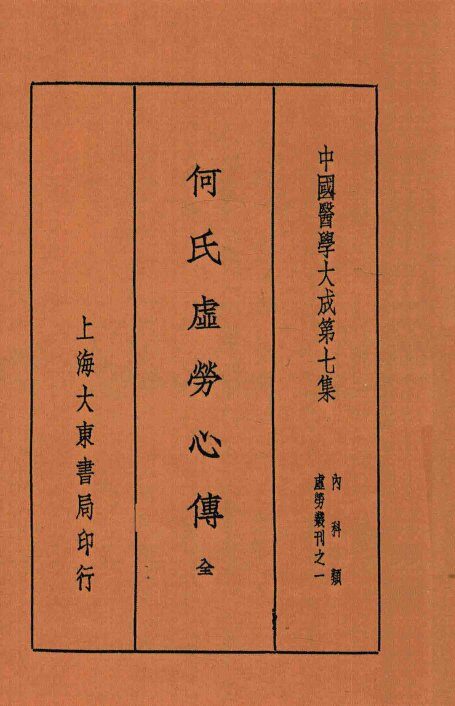 中國醫學大成第七集
內科類
虛勞叢刊之一
何氏虛勞心傳 全
上海大東書局印行